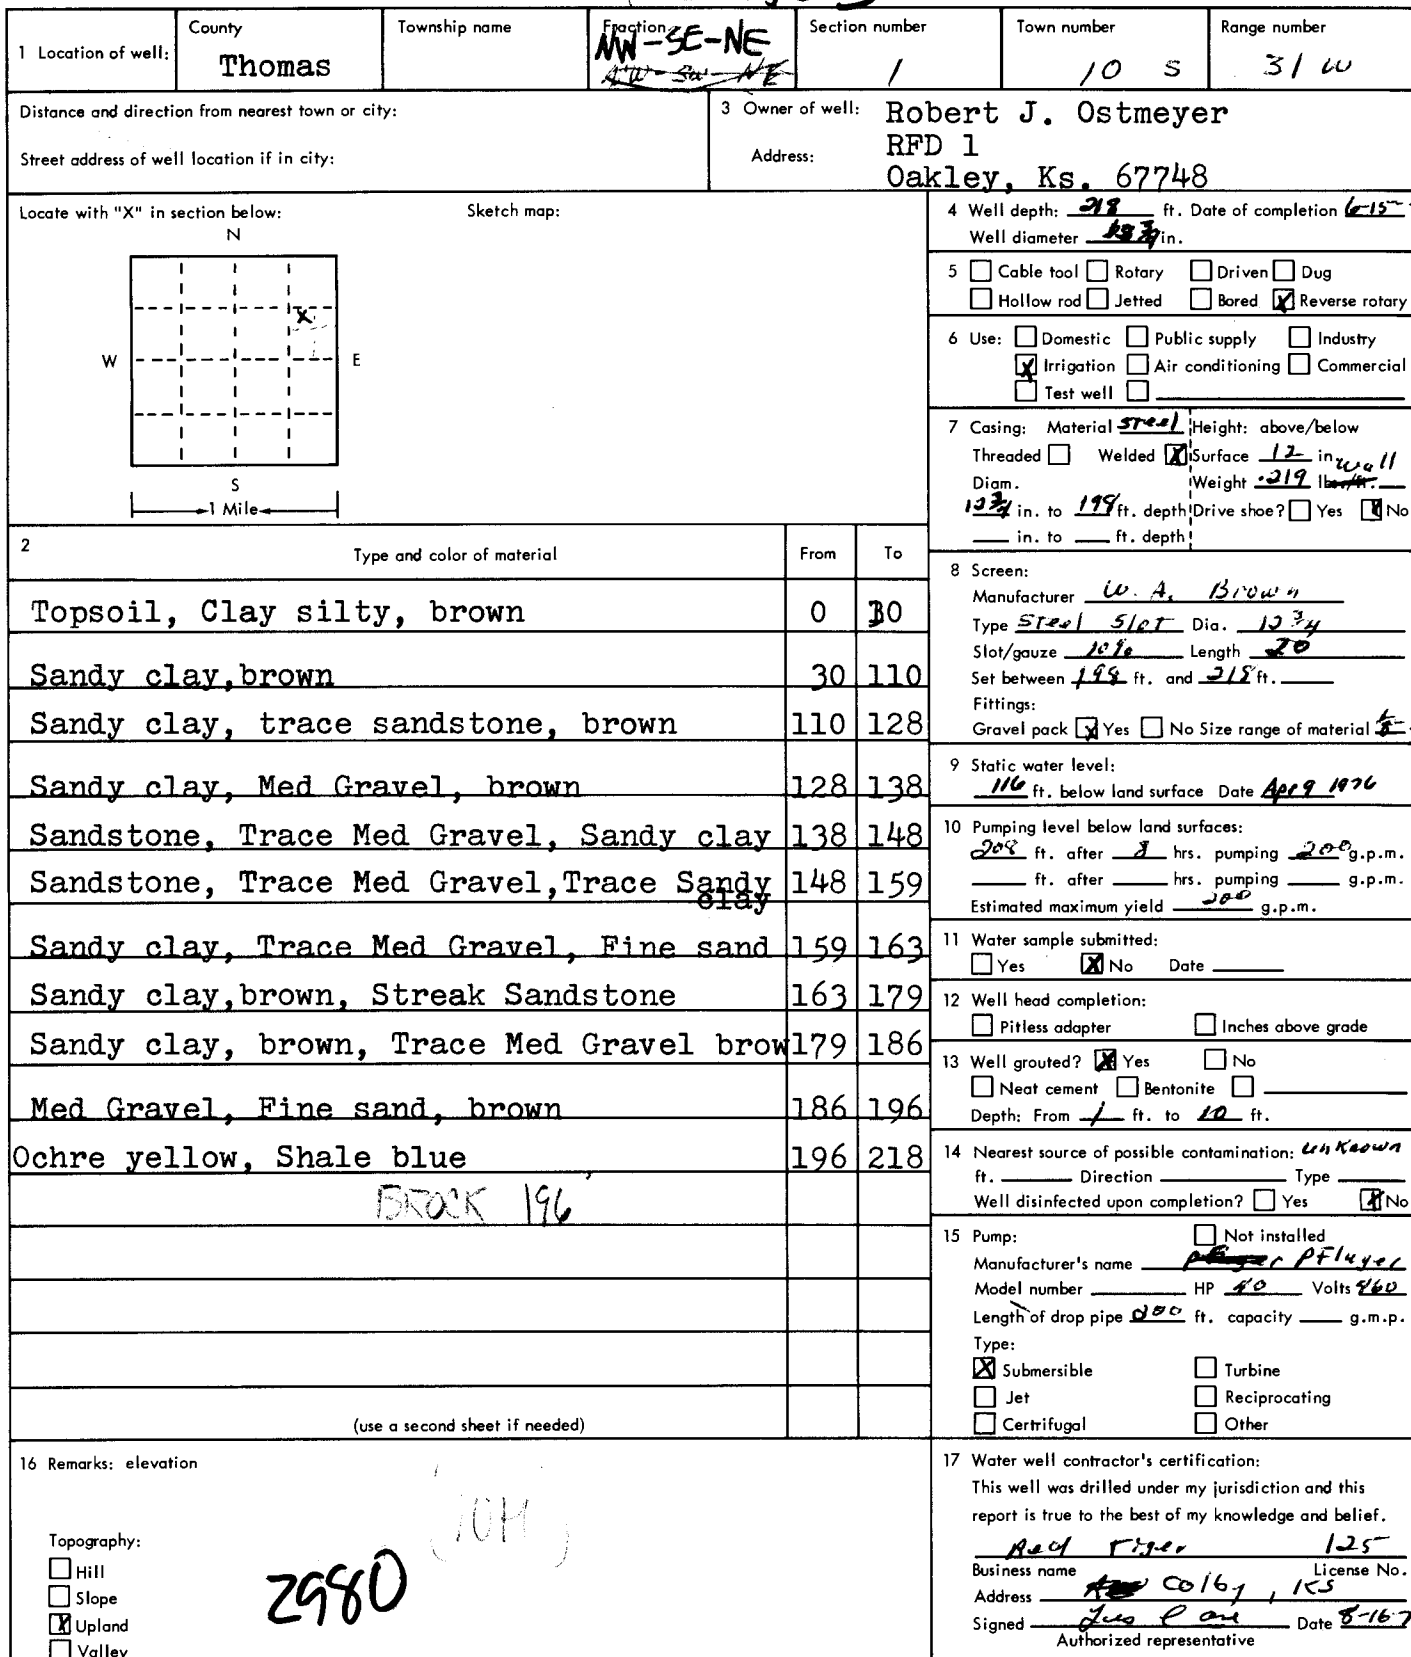 County
Township name
Fraction
Section number
Town number
Range number
1 Location of well:
Thomas
NW-SE-NE
NW-SW-NE
1
10 S
31 W
Distance and direction from nearest town or city:
Street address of well location if in city:
3 Owner of well: Robert J. Ostmeyer
Address: RFD 1
Oakley, Ks. 67748
Locate with "X" in section below:
Sketch map:
N
X
W
E
S
1 Mile
2
Type and color of material
From
To
Topsoil, Clay silty, brown 0 30
Sandy clay,brown 30 110
Sandy clay, trace sandstone, brown 110 128
Sandy clay, Med Gravel, brown 128 138
Sandstone, Trace Med Gravel, Sandy clay 138 148
Sandstone, Trace Med Gravel,Trace Sandy 148 159
clay
Sandy clay, Trace Med Gravel, Fine sand 159 163
Sandy clay,brown, Streak Sandstone 163 179
Sandy clay, brown, Trace Med Gravel brow 179 186
Med Gravel, Fine sand, brown 186 196
Ochre yellow, Shale blue 196 218
BROCK 196'
(use a second sheet if needed)
4 Well depth: 218 ft. Date of completion 6-15-
Well diameter in.
5 Cable tool Rotary Driven Dug
Hollow rod Jetted Bored X Reverse rotary
6 Use: Domestic Public supply Industry
X Irrigation Air conditioning Commercial
Test well
7 Casing: Material steel Height: above/below
Threaded Welded X Surface 12 in.
Diam. Weight .219 lbs./ft. wall
12 3/4 in. to 198 ft. depth Drive shoe? Yes X No
in. to ft. depth
8 Screen:
Manufacturer W. A. Brown
Type Steel Slot Dia. 12 3/4
Slot/gauze Length 20
Set between 198 ft. and 218 ft.
Fittings:
Gravel pack X Yes No Size range of material
9 Static water level:
116 ft. below land surface Date Apr 9 1976
10 Pumping level below land surfaces:
208 ft. after hrs. pumping 200 g.p.m.
ft. after hrs. pumping g.p.m.
Estimated maximum yield 200 g.p.m.
11 Water sample submitted:
Yes X No Date
12 Well head completion:
Pitless adapter Inches above grade
13 Well grouted? X Yes No
Neat cement Bentonite
Depth: From 1 ft. to 10 ft.
14 Nearest source of possible contamination: unknown
ft. Direction Type
Well disinfected upon completion? Yes X No
15 Pump: Not installed
Manufacturer's name Pfluger
Model number HP 40 Volts 460
Length of drop pipe 200 ft. capacity g.m.p.
Type:
X Submersible Turbine
Jet Reciprocating
Certrifugal Other
16 Remarks: elevation
(TOH)
Topography:
Hill
Slope
X Upland
Valley
2980
17 Water well contractor's certification:
This well was drilled under my jurisdiction and this
report is true to the best of my knowledge and belief.
Red Tiger 125
Business name License No.
Address Colby, KS
Signed Date 8-16-7
Authorized representative